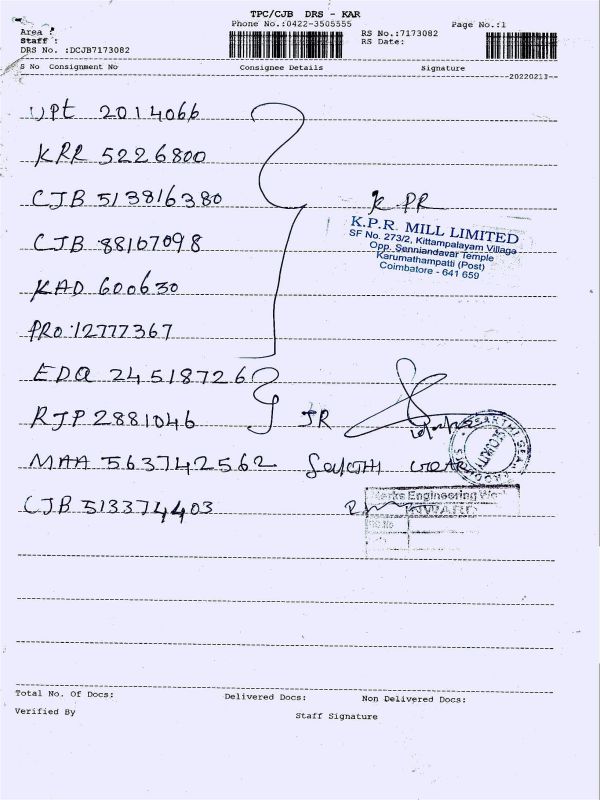 TPC/CJB DRS - KAR
Phone No.:0422-3505555
Page No.:1
Area :
Staff :
DRS No. :DCJB7173082
RS No.:7173082
RS Date:
S No Consignment No Consignee Details Signature
20220213
UPt 2014066
KRR 5226800
CJB 513816380
K PR
K.P.R. MILL LIMITED
SF No. 273/2, Kittampalayam Village
Opp. Senniandavar Temple
Karumathampatti (Post)
Coimbatore - 641 659
CJB 88167098
KAD 600630
PRO 12777367
EDQ 245187260
RJP 2881046 JR
MAA 563742562
SECURITY
CJB 513374403
Engineering
INWARD
Total No. Of Docs: Delivered Docs: Non Delivered Docs:
Verified By Staff Signature